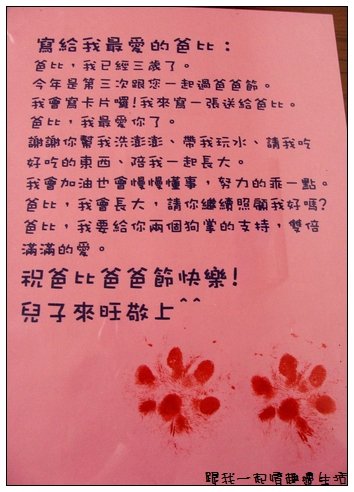 寫給我最愛的爸比：
爸比，我已經三歲了。
今年是第三次跟您一起過爸爸節。
我會寫卡片囉!我來寫一張送給爸比。
爸比，我最愛你了。
謝謝你幫我洗澎澎、帶我玩水、請我吃
好吃的東西、陪我一起長大。
我會加油也會慢慢懂事，努力的乖一點。
爸比，我會長大，請你繼續照顧我好嗎?
爸比，我要給你兩個狗掌的支持，雙倍
滿滿的愛。
祝爸比爸爸節快樂!
兒子來旺敬上^^
跟我一起情趣慢生活